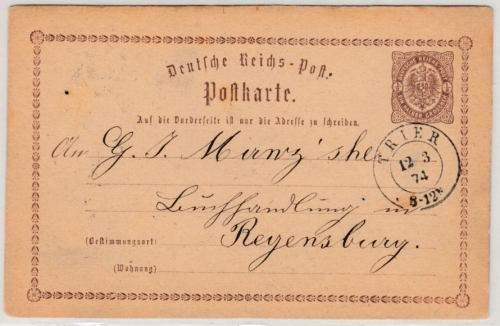 Deutsche Reichs-Post.
Postkarte.
Auf die Vorderseite ist nur die Adresse zu schreiben.
An G. J. Manz'sche
Buchhandlung in
(Bestimmungsort:) Regensburg.
(Wohnung)
TRIER
12 3
74
8-12V